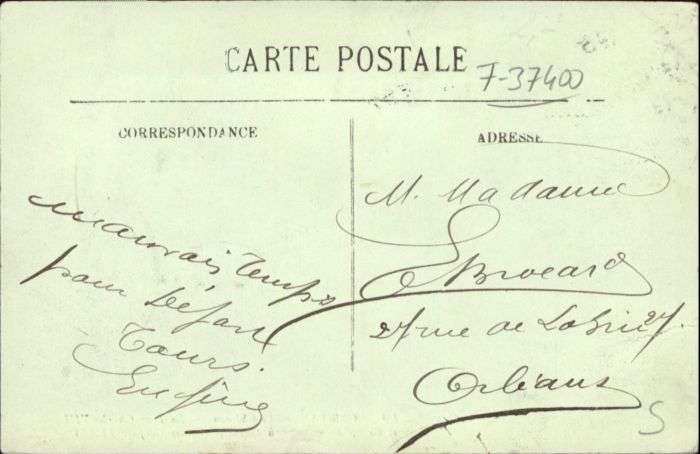 CARTE POSTALE
7-37400
CORRESPONDANCE
ADRESSE
Mauvais Temps
pour
Tours.
Eugène
M. Madame
E Brocard
27 rue de 27.
Orléans
5